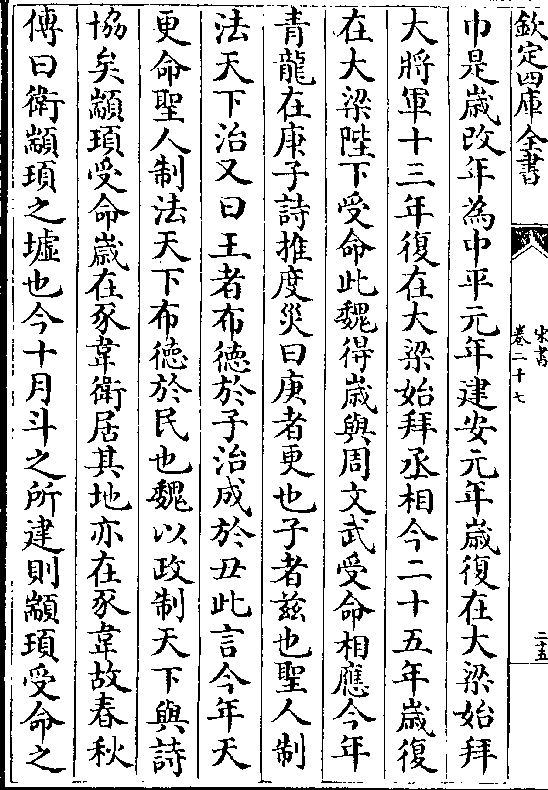 欽定四庫全書
宋書
卷二十七
二十五
巾是嵗改年為中平元年建安元年嵗復在大梁始拜
大將軍十三年復在大梁始拜丞相今二十五年嵗復
在大梁陛下受命此魏得嵗與周文武受命相應今年
青龍在庚子詩推度災曰庚者更也子者兹也聖人制
法天下治又曰王者布徳於子治成於丑此言今年天
更命聖人制法天下布徳於民也魏以政制天下與詩
協矣顓頊受命嵗在豕韋衛居其地亦在豕韋故春秋
傳曰衛顓頊之墟也今十月斗之所建則顓頊受命之